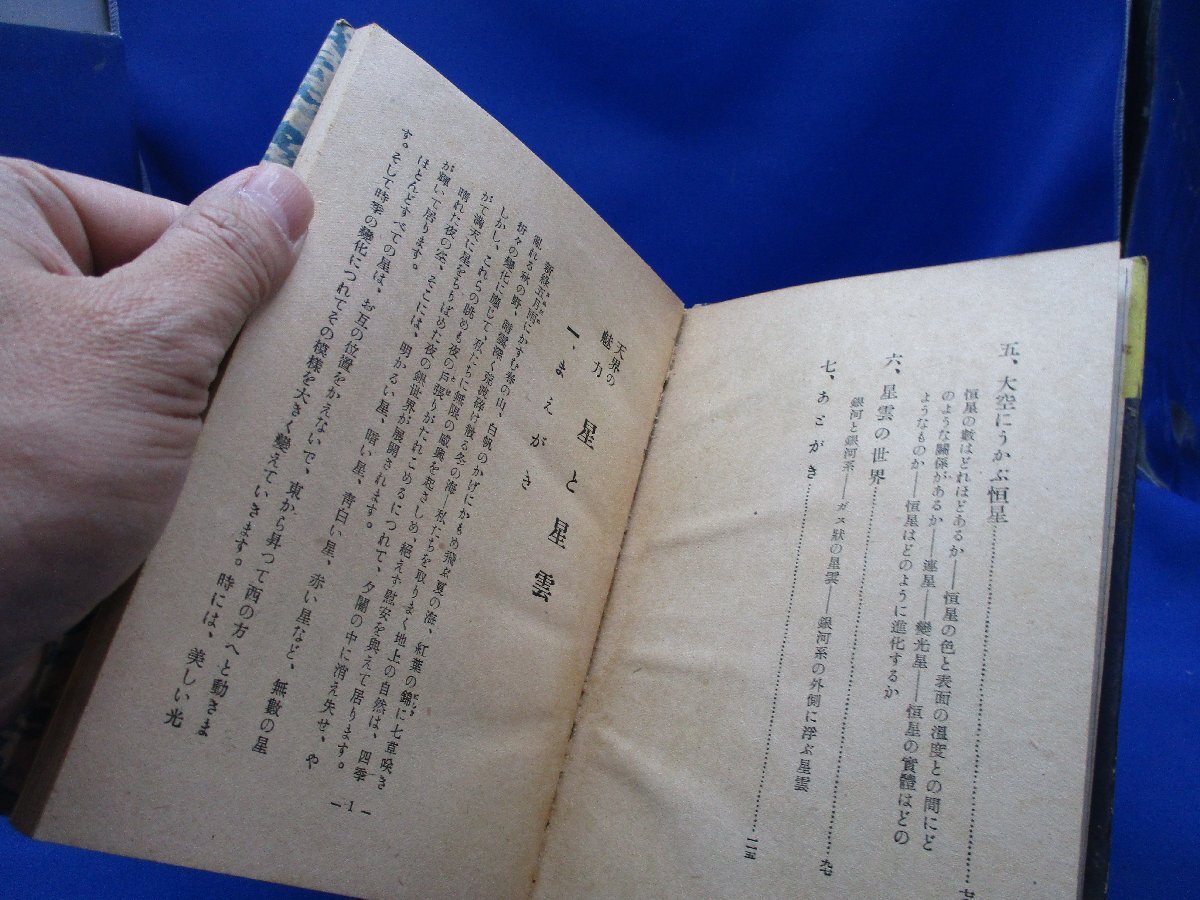 五、大空にうかぶ恒星
恒星の數はどれほどあるか――恒星の色と表面の溫度との間にど
のような關係があるか――連星――變光星――恒星の實體はどの
ようなものか――恒星はどのように進化するか
六、星雲の世界 九七
銀河と銀河系――ガス狀の星雲――銀河系の外側に浮ぶ星雲
七、あとがき 一一五
天界の
魅力
星と星雲
一、まえがき
新綠五月雨にかすむ春の山、白帆のかげにかもめ飛ぶ夏の海、紅葉の錦に七草咲き
亂れる秋の野、暗雲深く怒濤碎け散る冬の海、私たちを取りまく地上の自然は、四季
折々の變化に應じて、私たちに無限の感興を起さしめ、絕えず慰安を與えて居ります。
しかし、これらの眺めも夜の戸張りがたれこめるにつれて、夕闇の中に消え失せ、や
がて滿天に星をちりばめた夜の銀世界が展開されます。
晴れた夜の空、そこには、明かるい星、暗い星、靑白い星、赤い星など、無數の星
が輝いて居ります。
ほとんどすべての星は、お互の位置をかえないで、東から昇つて西の方へと動きま
す。そして時季の變化につれてその模樣を大きく變えていきます。時には、美しい光
―1―